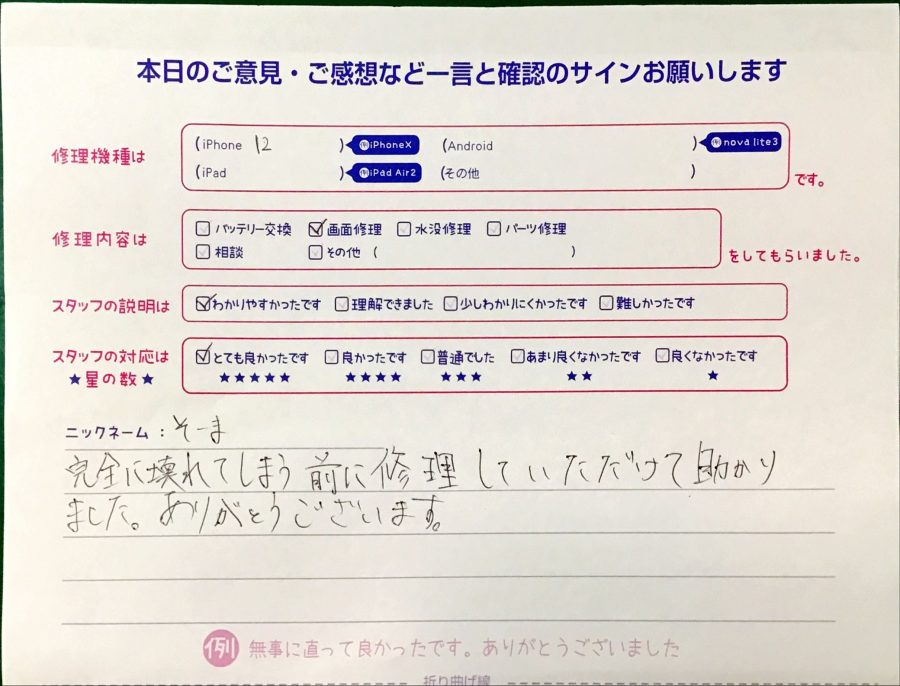 本日のご意見・ご感想など一言と確認のサインお願いします
修理機種は
(iPhone 12 ) 例iPhoneX (Android ) 例nova lite3
(iPad ) 例iPad Air2 (その他 ) です。
修理内容は
バッテリー交換 画面修理 水没修理 パーツ修理
相談 その他 ( ) をしてもらいました。
スタッフの説明は わかりやすかったです 理解できました 少しわかりにくかったです 難しかったです
スタッフの対応は とても良かったです 良かったです 普通でした あまり良くなかったです 良くなかったです
★星の数★ ★★★★★ ★★★★ ★★★ ★★ ★
ニックネーム：そーま
完全に壊れてしまう前に修理していただけて助かり
ました。ありがとうございます。
例 無事に直って良かったです。ありがとうございました
折り曲げ線